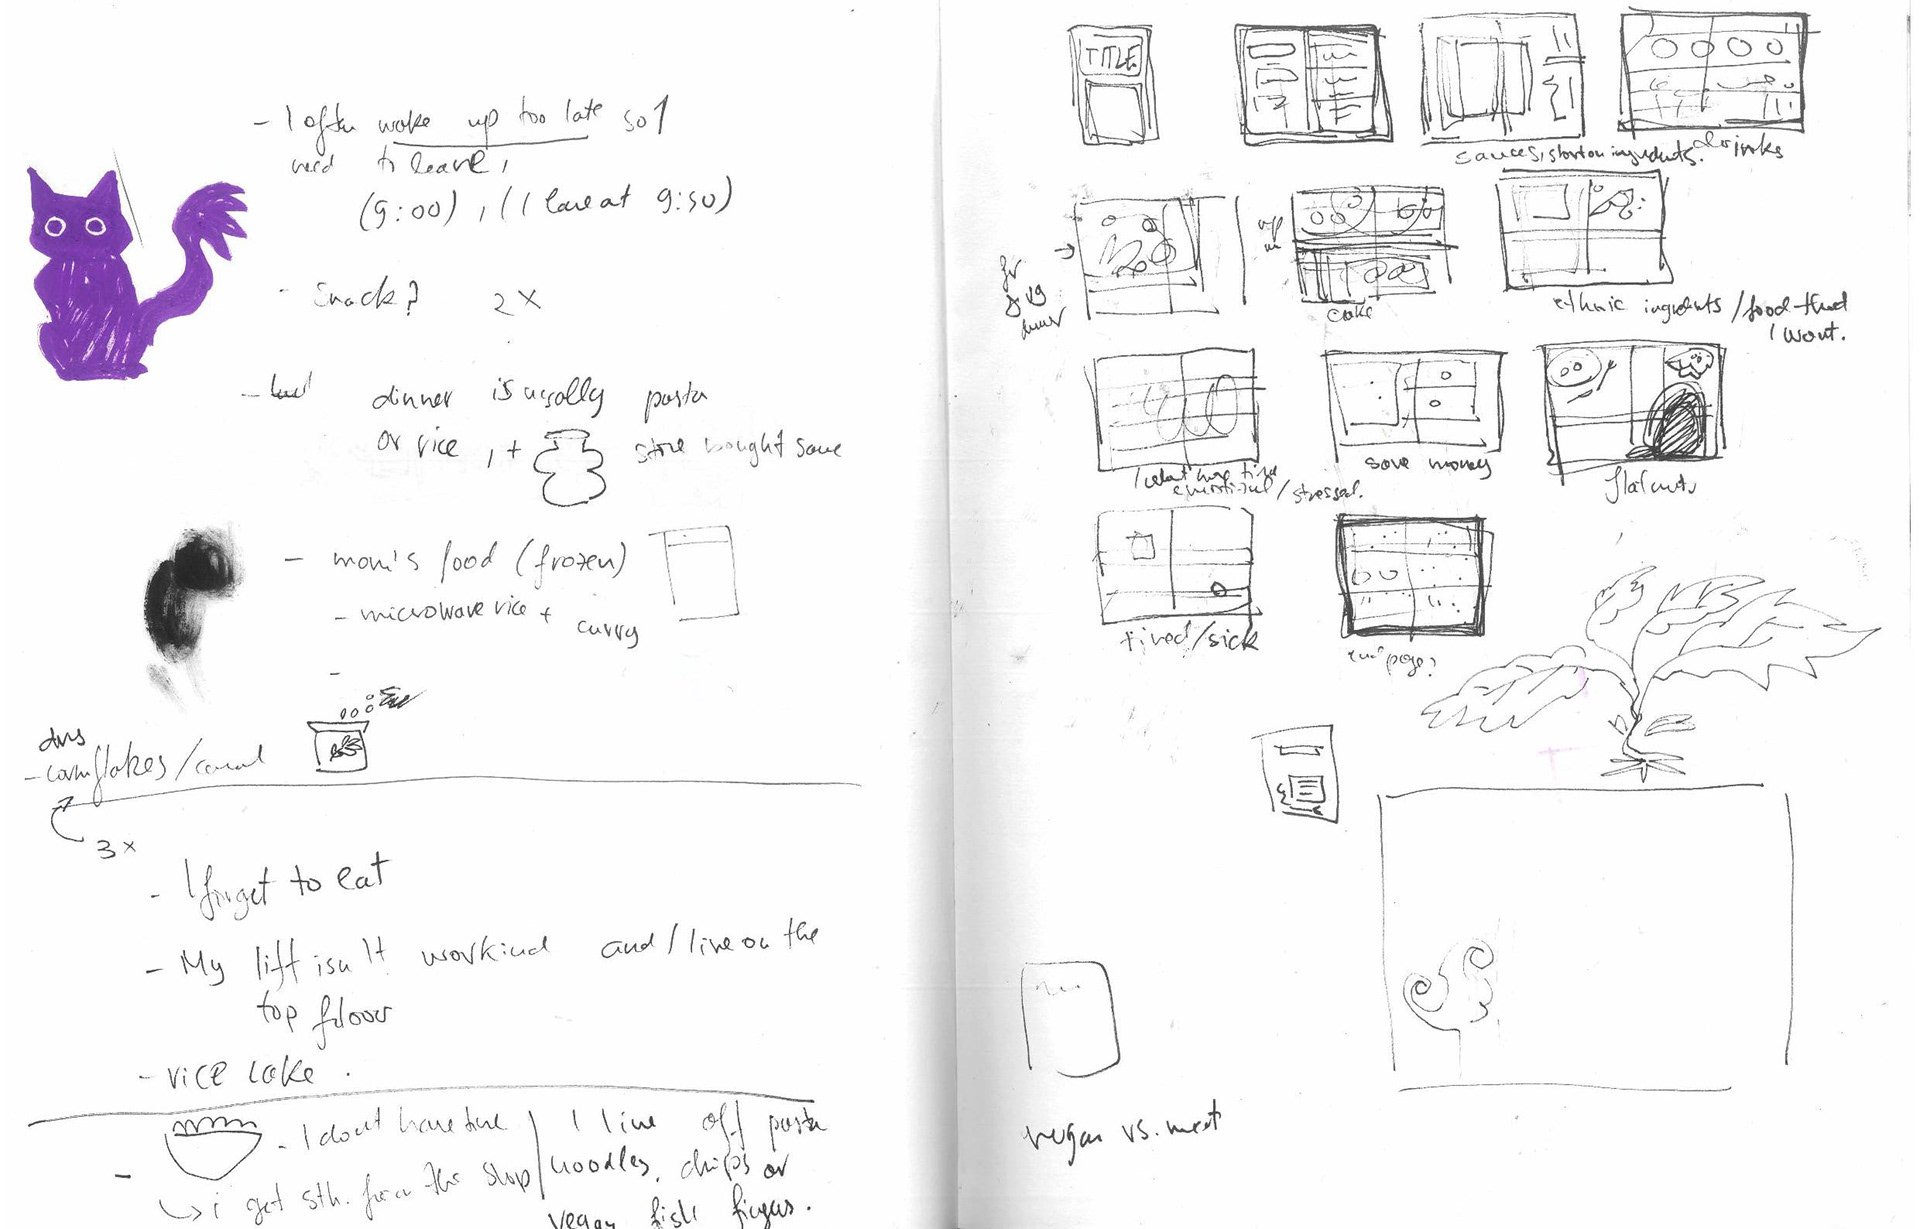 - I often wake up too late so I
need to leave,
(9:00), (I leave at 9:50)
- Snack? 2x
- dinner is usually pasta
or rice, + store bought sauce
- mom's food (frozen)
- microwave rice +
curry
-
- cornflakes/cereal
3x
- I forget to eat
- My lift isn't workind and I live on the
top fdloor
- rice cake.
- I dont have time
-
↳ i get sth. from the shop
I live off pasta
noodles, chips or
vegan fish fingers.
TITLE
sauces, ingredients.
drinks
for
cake
ethnic ingredients / food that
I want.
I dont have time
emotional / stressed.
save money
flatmates
tired/sick
end page?
vegan vs. meat